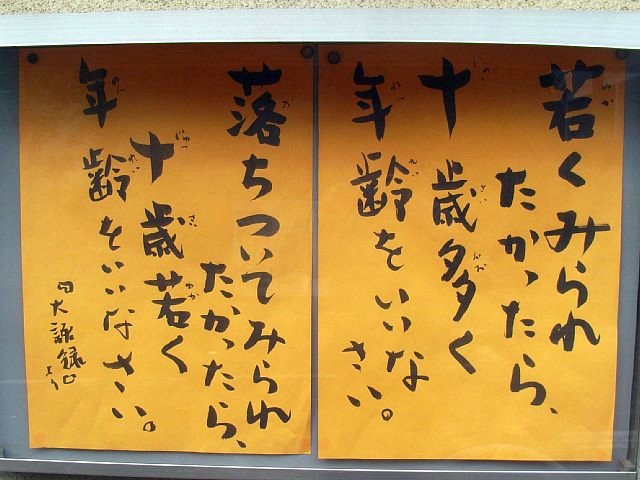 若くみられ
たかったら、
十歳多く
年齢をいいなさい。
落ちついてみられ
たかったら、
十歳若く
年齢をいいなさい。